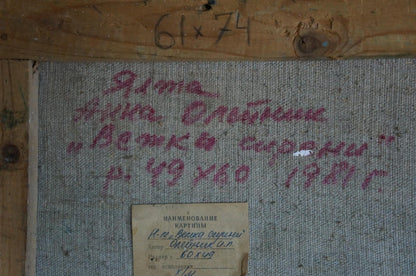 61 x 74
Ялта
Анна Олейник
„Ветки сирени"
р. 49 х 60 1981 г.
НАИМЕНОВАНИЕ
КАРТИНЫ
Н-т „Ветка сирени"
Автор Олейник А.П.
Размер 60х49